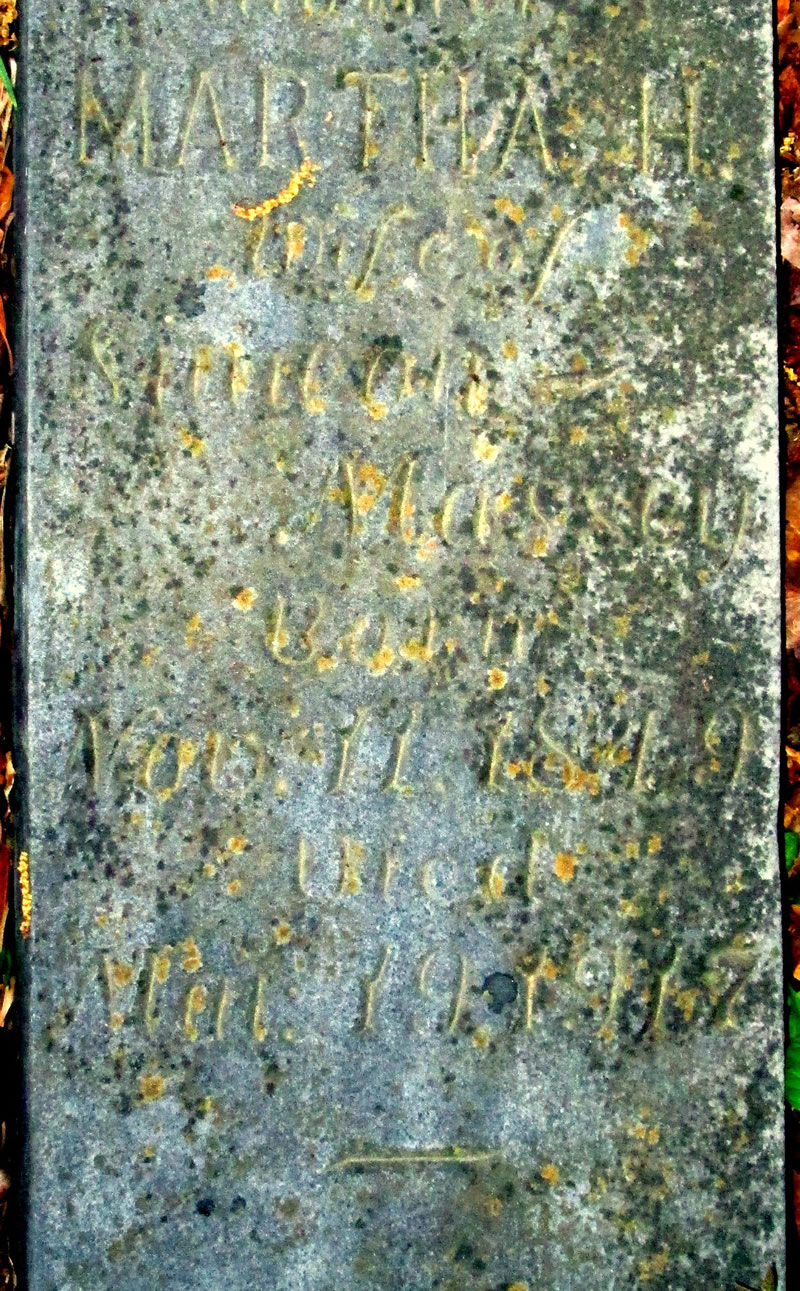 MARTHA H.
Wife of
Simeon
Massey
Born
Nov. 11. 1849
Died
Mar. 19 1917